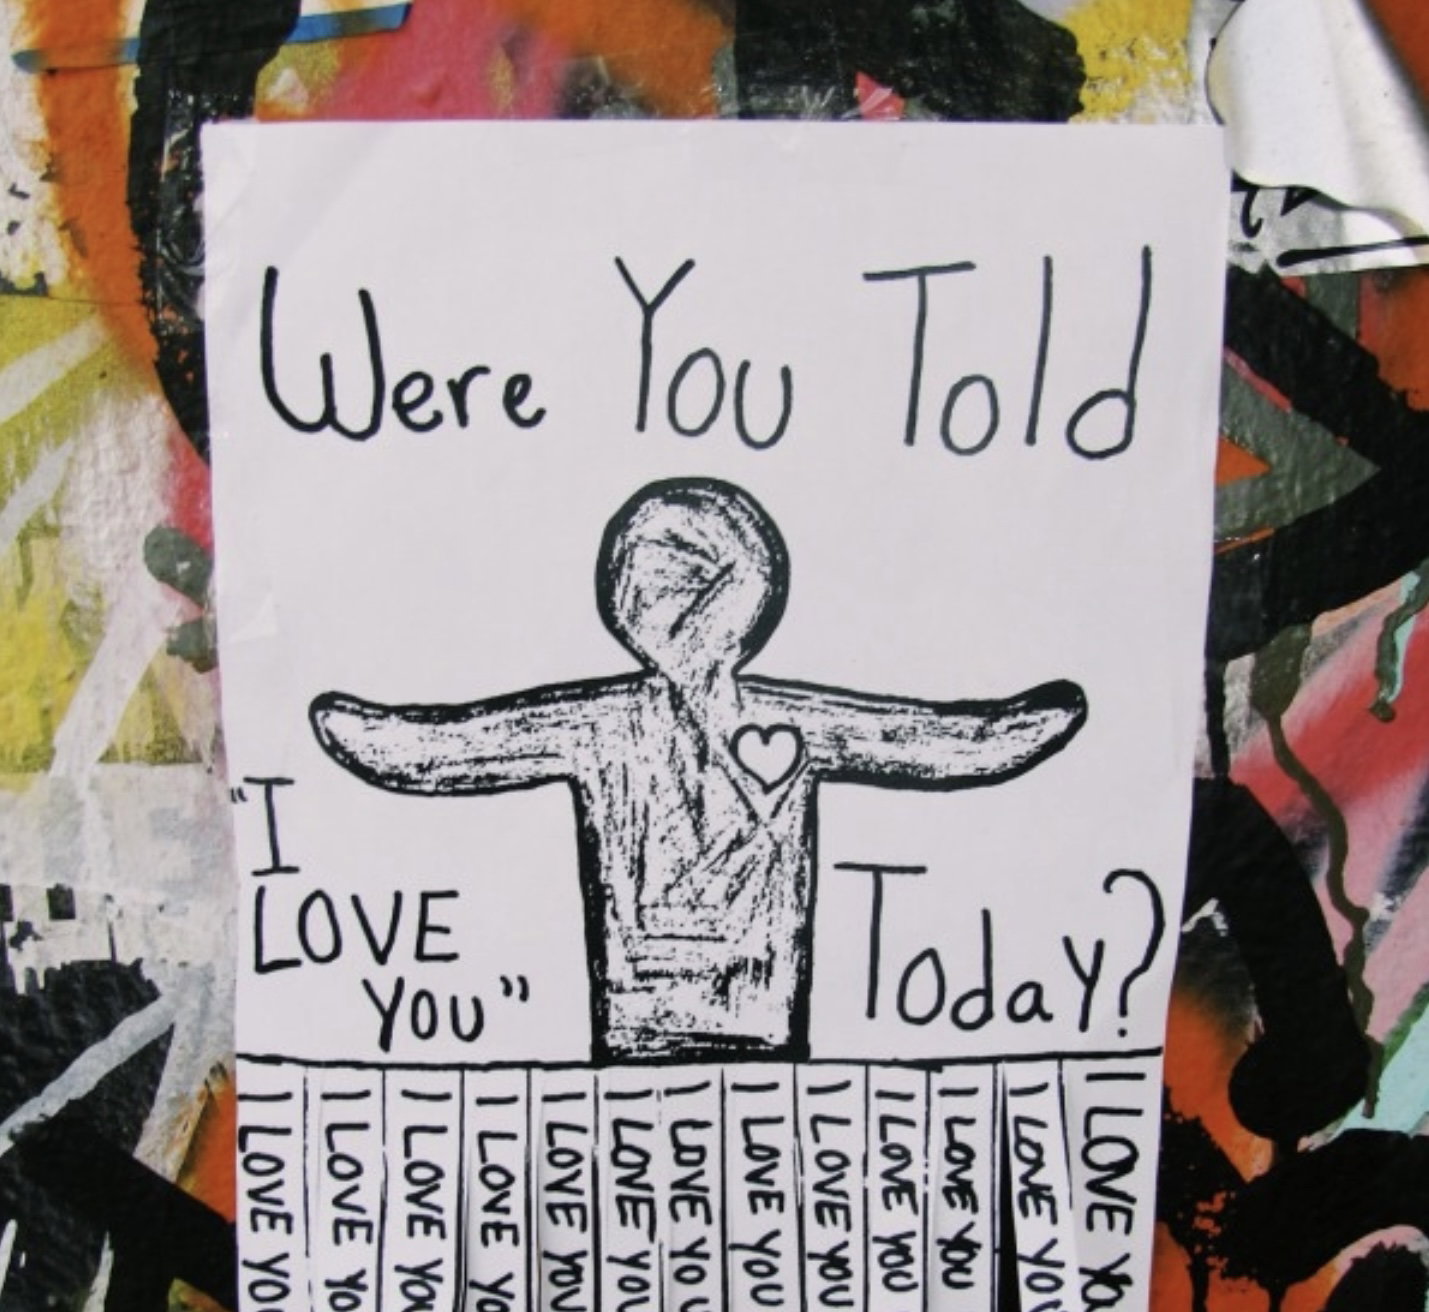 Were You Told
"I
LOVE
YOU"
Today?
I LOVE YOU
I LOVE YO
I LOVE YOU
I LOVE YO
I LOVE YOU
I LOVE YOU
I LOVE YOU
I LOVE YOU
I LOVE YOU
I LOVE YOU
I LOVE YOU
I LOVE YOU
I LOVE YOU